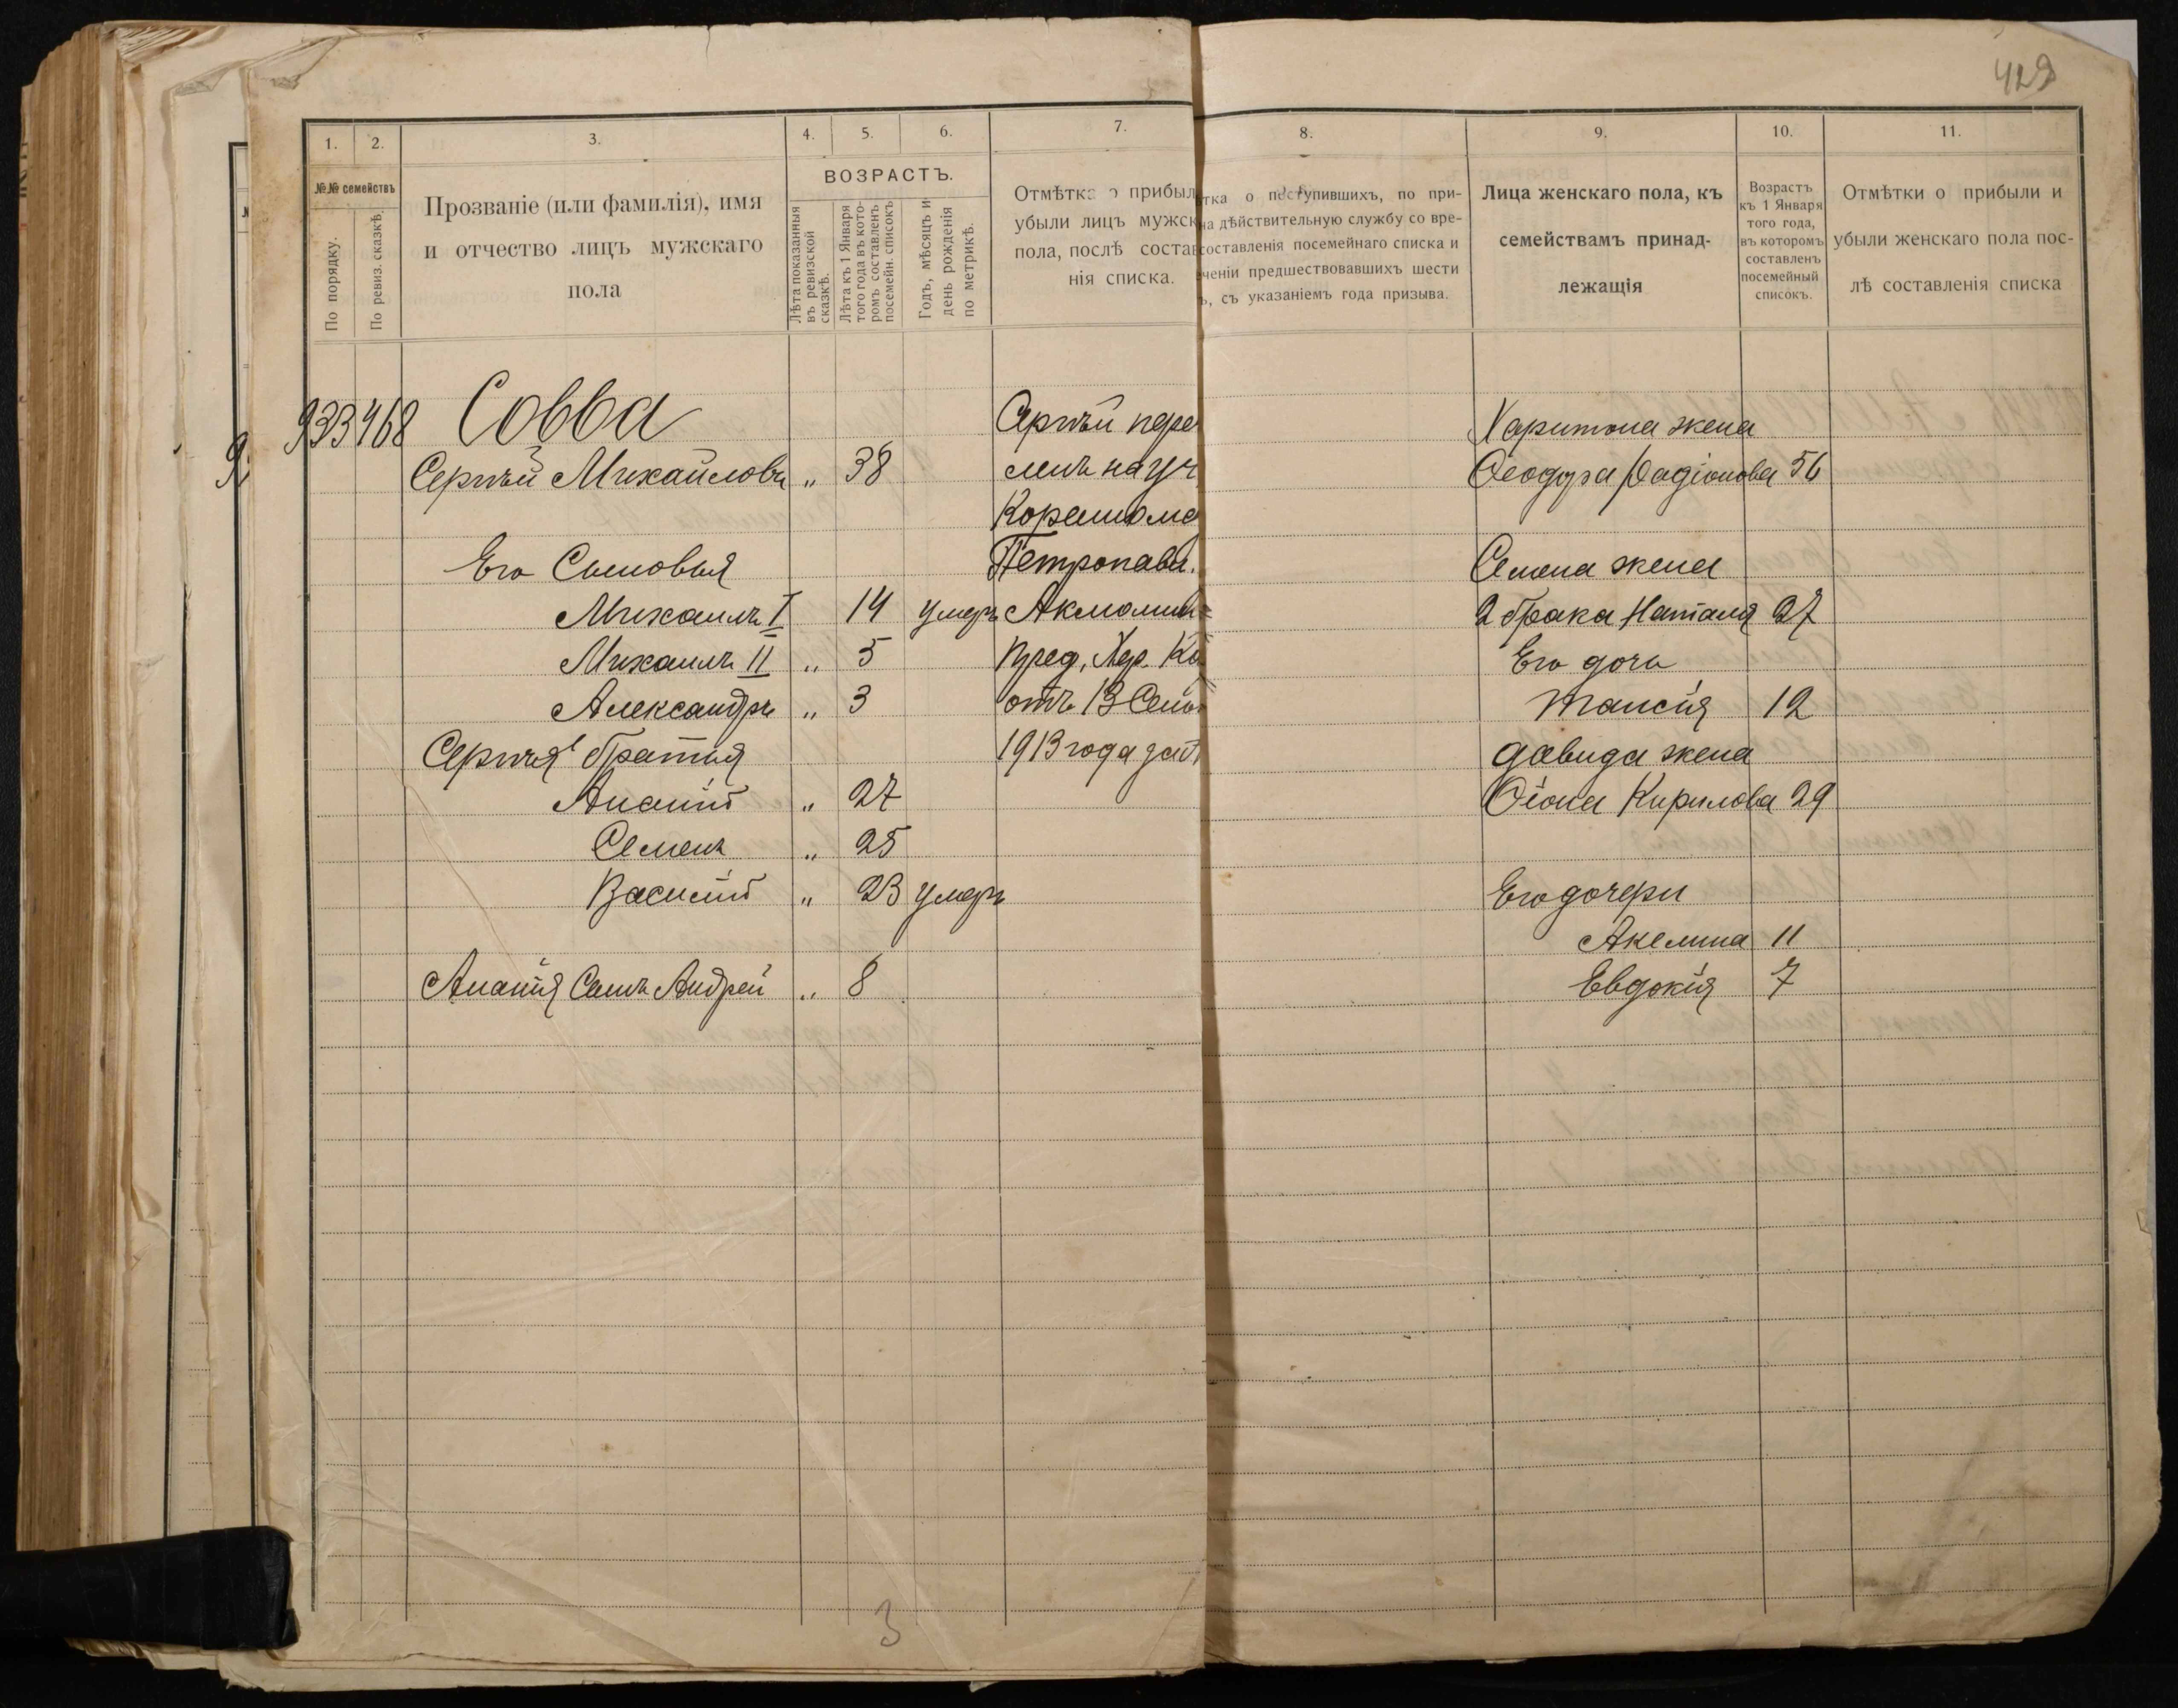 429
1. 2. 3. 4. 5. 6. 7.
№№ семействъ
По порядку.
По ревиз. сказкѣ.
Прозваніе (или фамилія), имя
и отчество лицъ мужскаго
пола
ВОЗРАСТЪ.
Лѣта показанныя
въ ревизской
сказкѣ.
Лѣта къ 1 Января
того года въ кото-
ромъ составленъ
посемейн. списокъ
Годъ, мѣсяцъ и
день рожденія
по метрикѣ.
Отмѣтка о прибыл
убыли лицъ мужск
пола, послѣ состав
нія списка.
933 468 Совва
Сергѣй Михайловъ „ 38
Его Сыновья
Михаилъ I 14 умеръ
Михаилъ II „ 5
Александръ „ 3
Сергѣя братья
Ананій „ 27
Семенъ „ 25
Василій „ 23 умеръ
Ананія Сынъ Андрей „ 8
Сергѣй пере
Петропавл.
Акмолин
отъ 13 Сен
1913 года за
3
8. 9. 10. 11.
тка о поступившихъ, по при-
на дѣйствительную службу со вре-
составленія посемейнаго списка и
ченіи предшествовавшихъ шести
ъ, съ указаніемъ года призыва.
Лица женскаго пола, къ
семействамъ принад-
лежащія
Возрастъ
къ 1 Января
того года,
въ которомъ
составленъ
посемейный
списокъ.
Отмѣтки о прибыли и
убыли женскаго пола пос-
лѣ составленія списка
Харитона жена
Ѳеодора Радіонова 56
Семена жена
2 брака Наталія 27
Его дочь
Таисія 12
Давида жена
Кирилова 29
Его дочери
Акелина 11
Евдокія 7